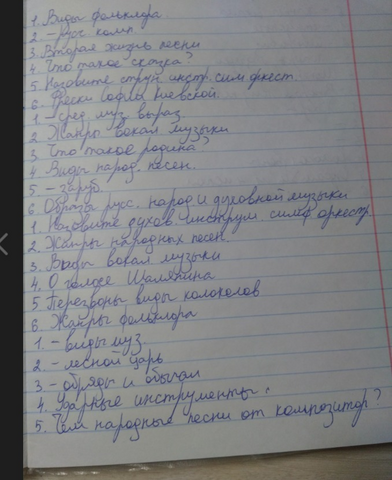 1. Виды фольклора
2. - русс. комп.
3. Вторая жизнь песни
4. Что такое сказка?
5. Назовите струн. инстр. сим. оркест.
6. Фрески Софии Киевской.
1 - сред. муз. выраз.
2 Жанры вокал музыки
3. Что такое родина?
4 Виды народ. песен.
5 - заруб.
6 Образы русс. народ и духовной музыки
1. Назовите духов. инструм симф оркестр.
2. Жанры народных песен.
3. Виды вокал музыки
4. О голосе Шаляпина
5 Перезвоны виды колоколов
6. Жанры фольклора
1. - виды муз.
2 - лесной царь
3 - обряды и обычаи
4. Ударные инструменты.
5. Чем народные песни от композитор?